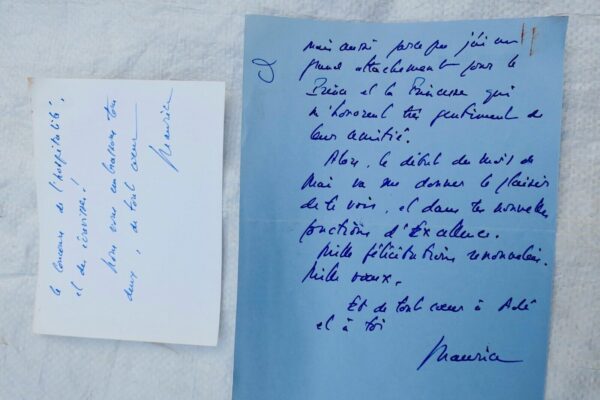 le concours de l'hospitalité,
et des écrevisses!
Nous vous embrassons tous
deux, de tout cœur
Maurice
mais aussi parce que j'ai un
grand attachement pour le
Prince et la Princesse qui
m'honorent très gentiment de
leur amitié.
Alors, le début du mois de
Mai va me donner le plaisir
de te voir, et dans tes nouvelles
fonctions d'Excellence.
Mille félicitations renouvelées.
Mille vœux.
Et de tout cœur à Adé
et à toi
Maurice